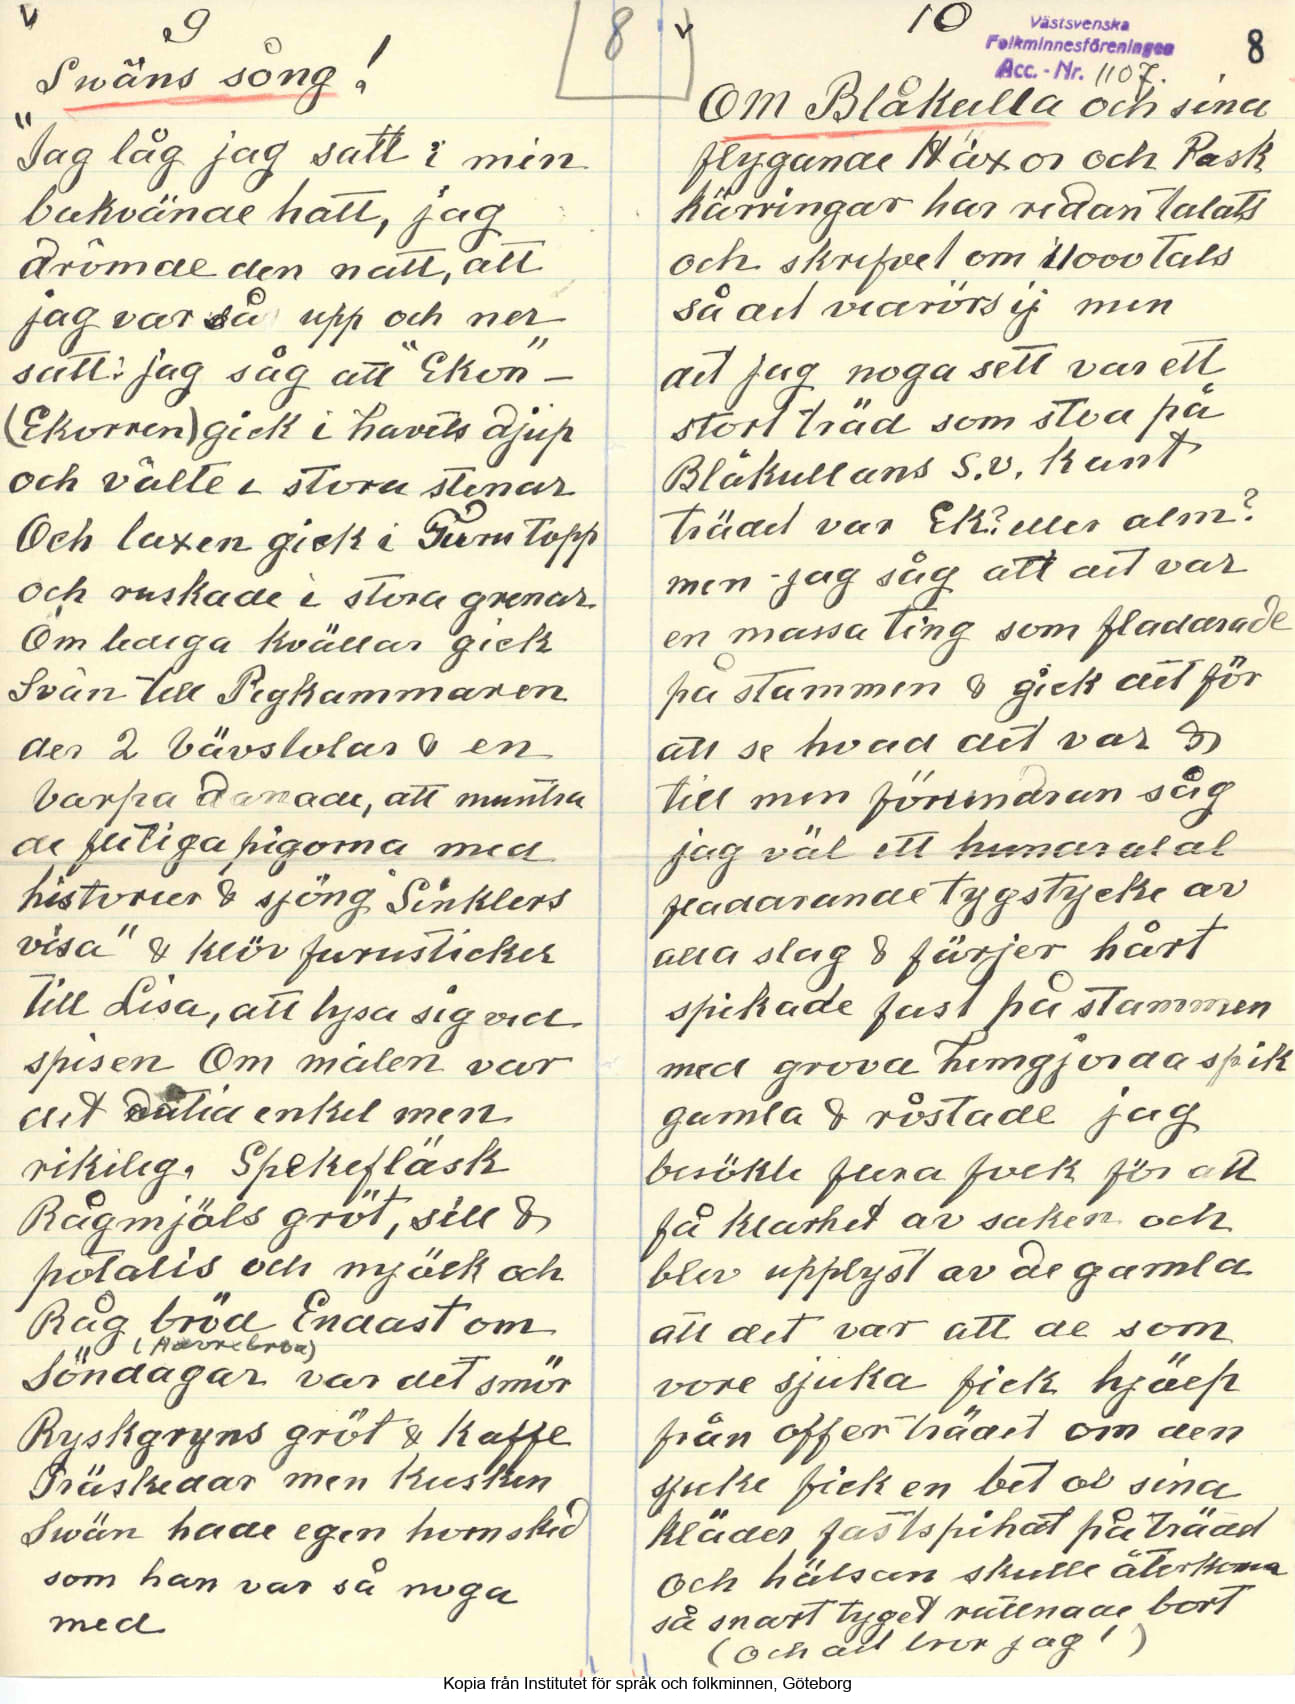 9
Swäns sång!
"Jag låg jag satt i min
bakvände hatt, jag
drömde den natt, att
jag var så upp och ner
satt: jag såg att "Ekon" –
(Ekorren) gick i havets djup
och välte i stora stenar
Och laxen gick i Furutopp
och ruskade i stora grenar
Om lediga kvällar gick
Svän till Pigkammaren
der 2 Vävstolar & en
Varpa danade, att muntra
de flitiga pigorna med
historier & sjöng "Sinklers
visa" & klöv furusticker
till Lisa, att lysa sig ved
spisen Om målen var
det dåtid enkel men
riklig. Spekefläsk
Rågmjöls gröt, sill &
potatis och mjölk och
Råg bröd Endast om
(Havrebröd)
Söndagar var det smör
Ryskgryns gröt & Kaffe
Träskedar men kusken
Swän hade egen hornsked
som han var så noga
med
8
10
Västsvenska
Folkminnesföreningen
Acc. - Nr. 1107.
8
Om Blåkulla och sina
flygande Häxor och Pask
kärringar har redan talats
och skrifvet om i 1000 tals
så det vidrörs ej men
det jag noga sett var ett
stort träd som stod på
Blåkullans S.V. kant
trädet var Ek? eller alm?
men jag såg att det var
en massa ting som fladdrade
på stammen & gick dit för
att se hvad det var &
till min förundran såg
jag väl ett hundratal
fladdrande tygstycke av
alla slag & färjer hårt
spikade fast på stammen
med grova hemgjorda spik
gamla & rostade jag
besökte flera folk för att
få klarhet av saken och
blev upplyst av de gamla
att det var att de som
vore sjuka fick hjälp
från offer trädet om den
sjuke fick en bet av sina
kläder fastspikat på träd
och hälsan skulle återkoma
så snart tyget ruttnade bort
(och det tror jag!)
Kopia från Institutet för språk och folkminnen, Göteborg